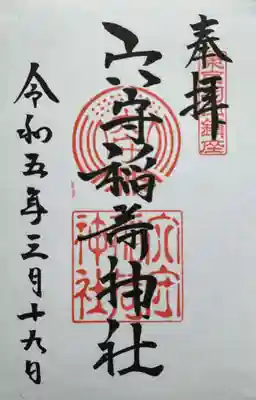 奉拝
穴守稲荷神社
令和五年三月十九日
穴守稲荷神社